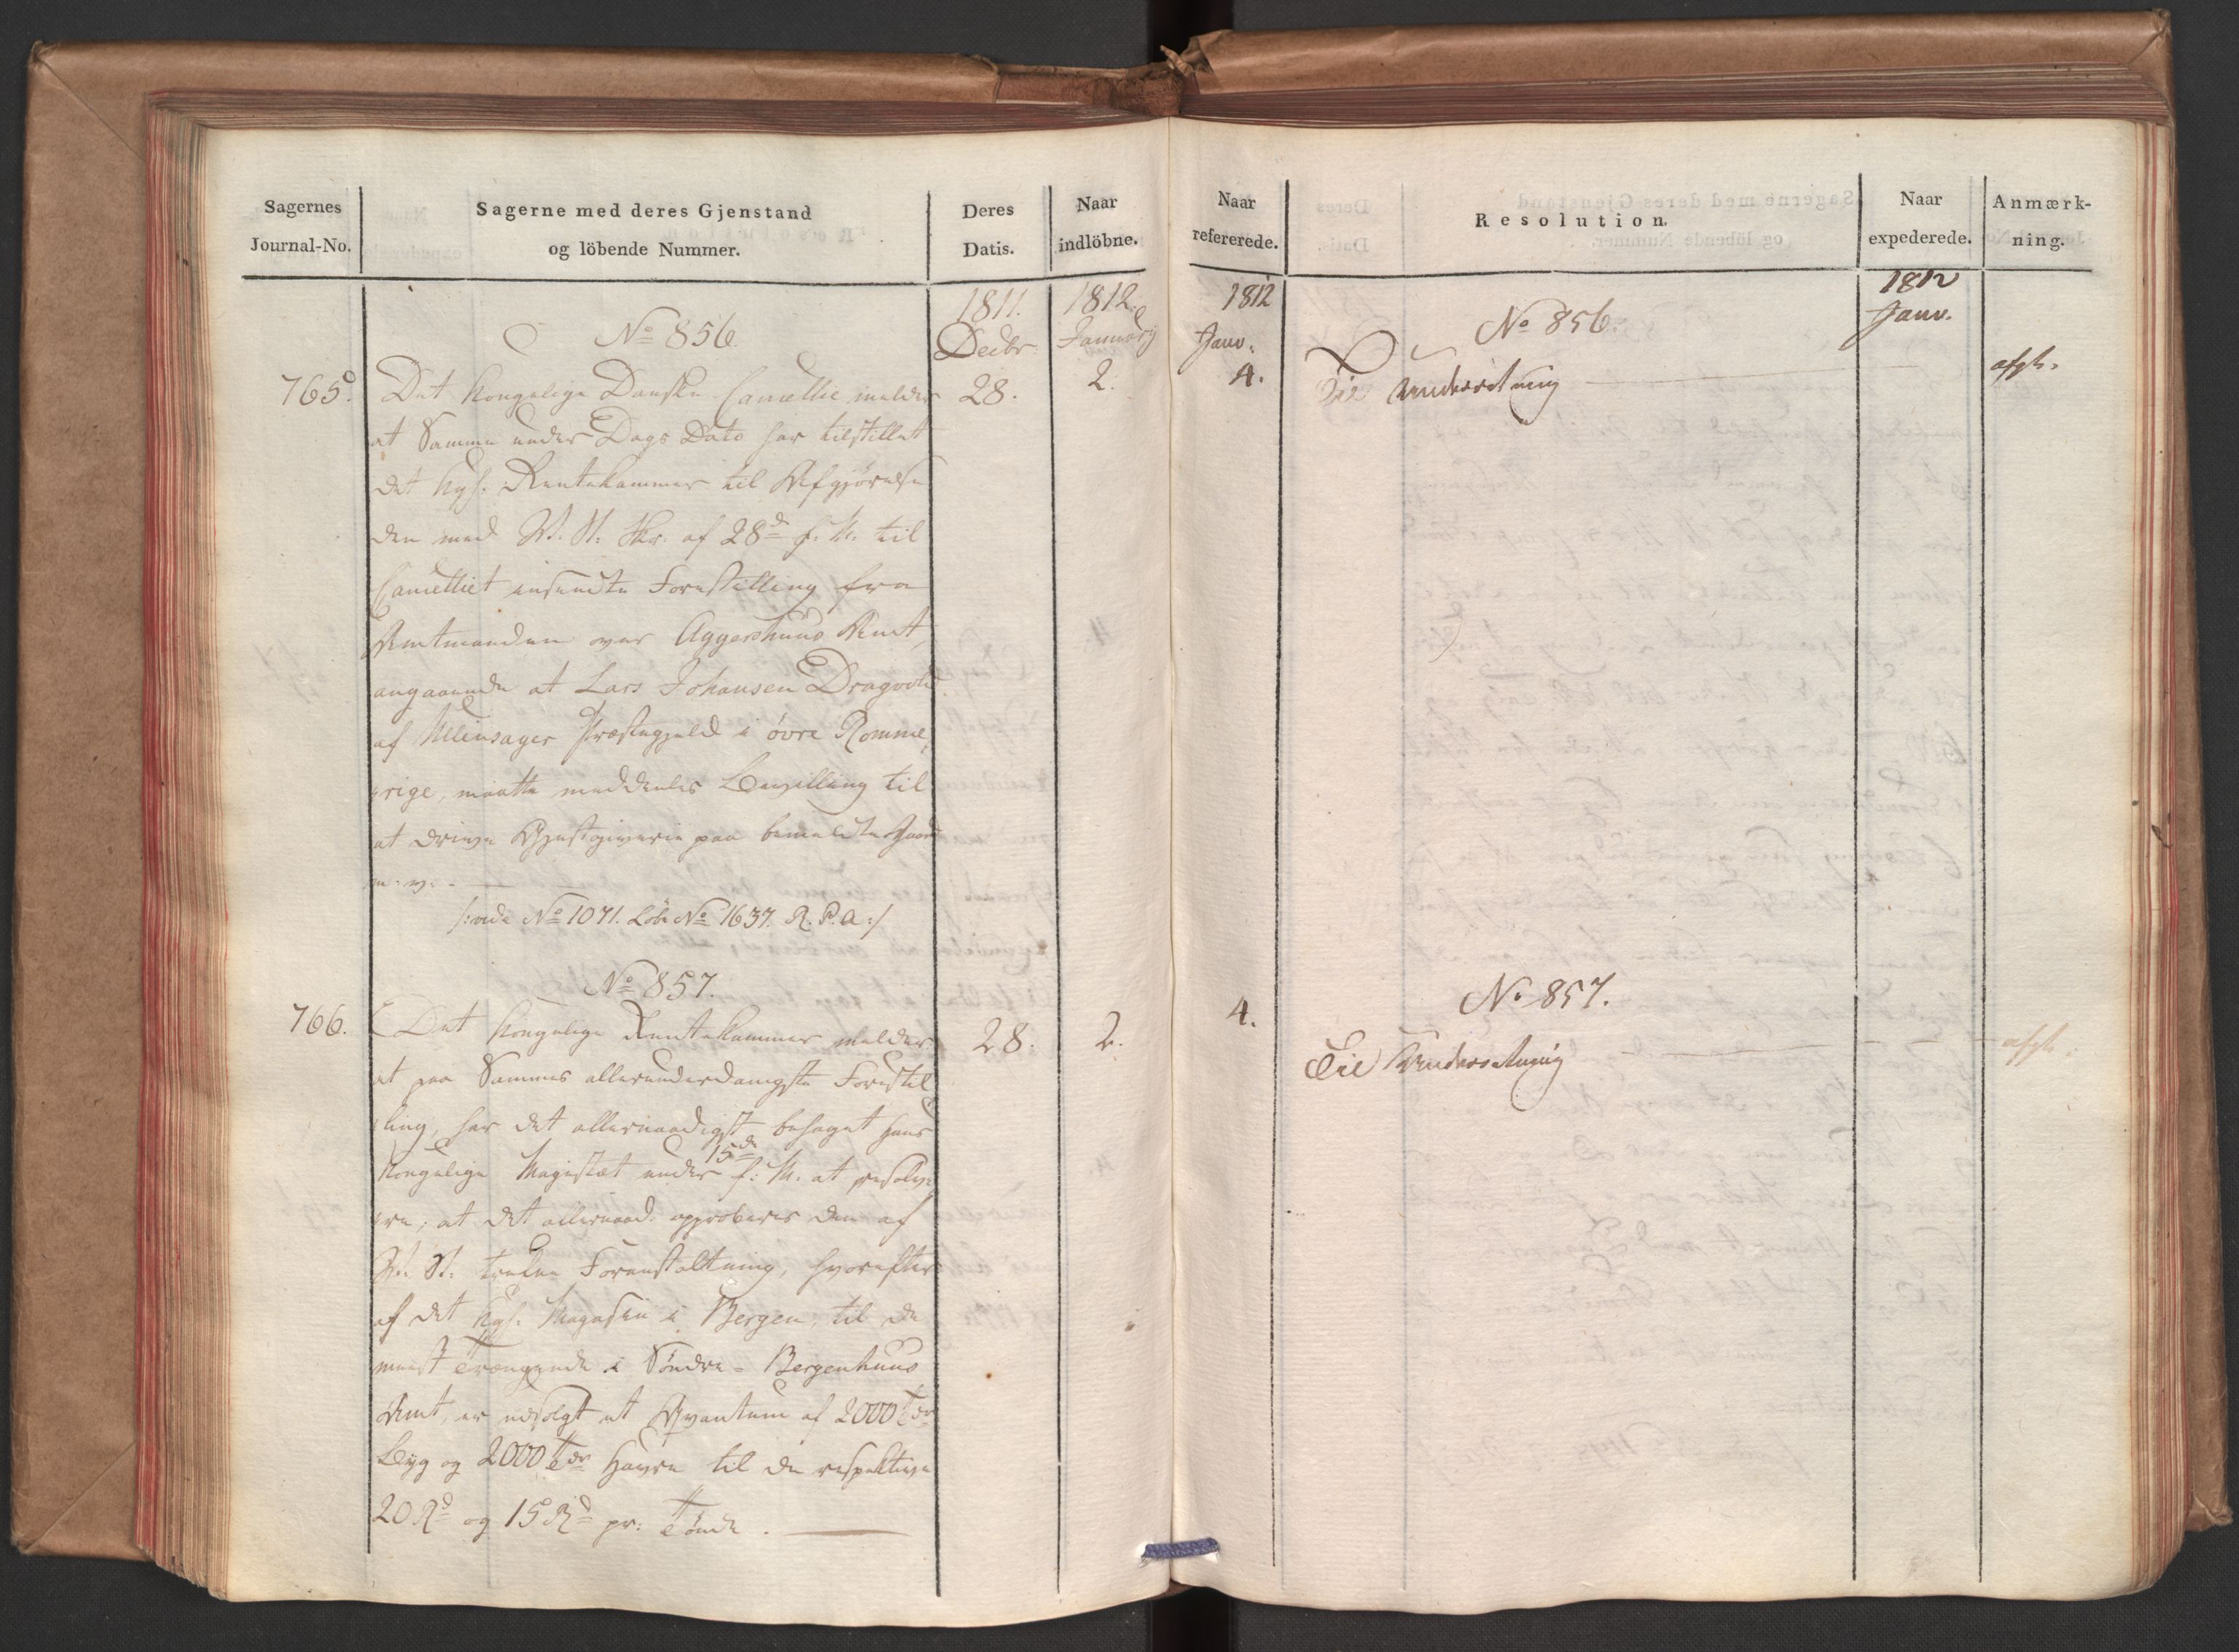 Sagernes
Journal-No.
Sagerne med deres Gjenstand
og löbende Nummer.
Deres
Datis.
Naar
indlöbne.
1811.
Decbr.
1812.
January
No 856.
765. Det Kongelige Danske Cancellie melder 28. 2.
at Samme under Dags Dato har tilstillet
det kgl. Rentekammer til Afgjörelse
den med R. K. Skr. af 28d f. M. til
Cancelliet indsendte Forestilling fra
Amtmanden over Aggershuus Amt,
angaaende at Lars Johansen Dragvold
af Ullensager Præstegjeld i övre Romme,
rige, maatte meddeeles Bevilling til
at drive Gjæstgiverie paa bemeldte Gaard
m: v: -
/: vide No 1071. Löbe No 1637. R. P. A :/
No 857.
766. Det Kongelige Rentekammer melder 28. 2.
at paa Sammes allerunderdanigste Forestil
ling, har det allernaadigst behaget Hans
Kongelige Majestæt under 15de f: M. at resolve
re, at det allernaad. approberes den af
R. K. trufne Foranstaltning, hvorefter
af det kgl. Magasin i Bergen, til de
meest Trængende i Söndre-Bergenhuus
Amt, er udsolgt et Qvantum af 2000 Tdr
Byg og 2000 Tdr Havre til de respektive
20 Rd og 15 Rd pr: Tönde.
Naar
refererede.
Resolution.
Naar
expederede.
Anmærk-
ning.
1812
Janv.
1812
Janv.
No 856.
4. Til Underretning afgk.
No 857.
4. Til Underretning afgk.